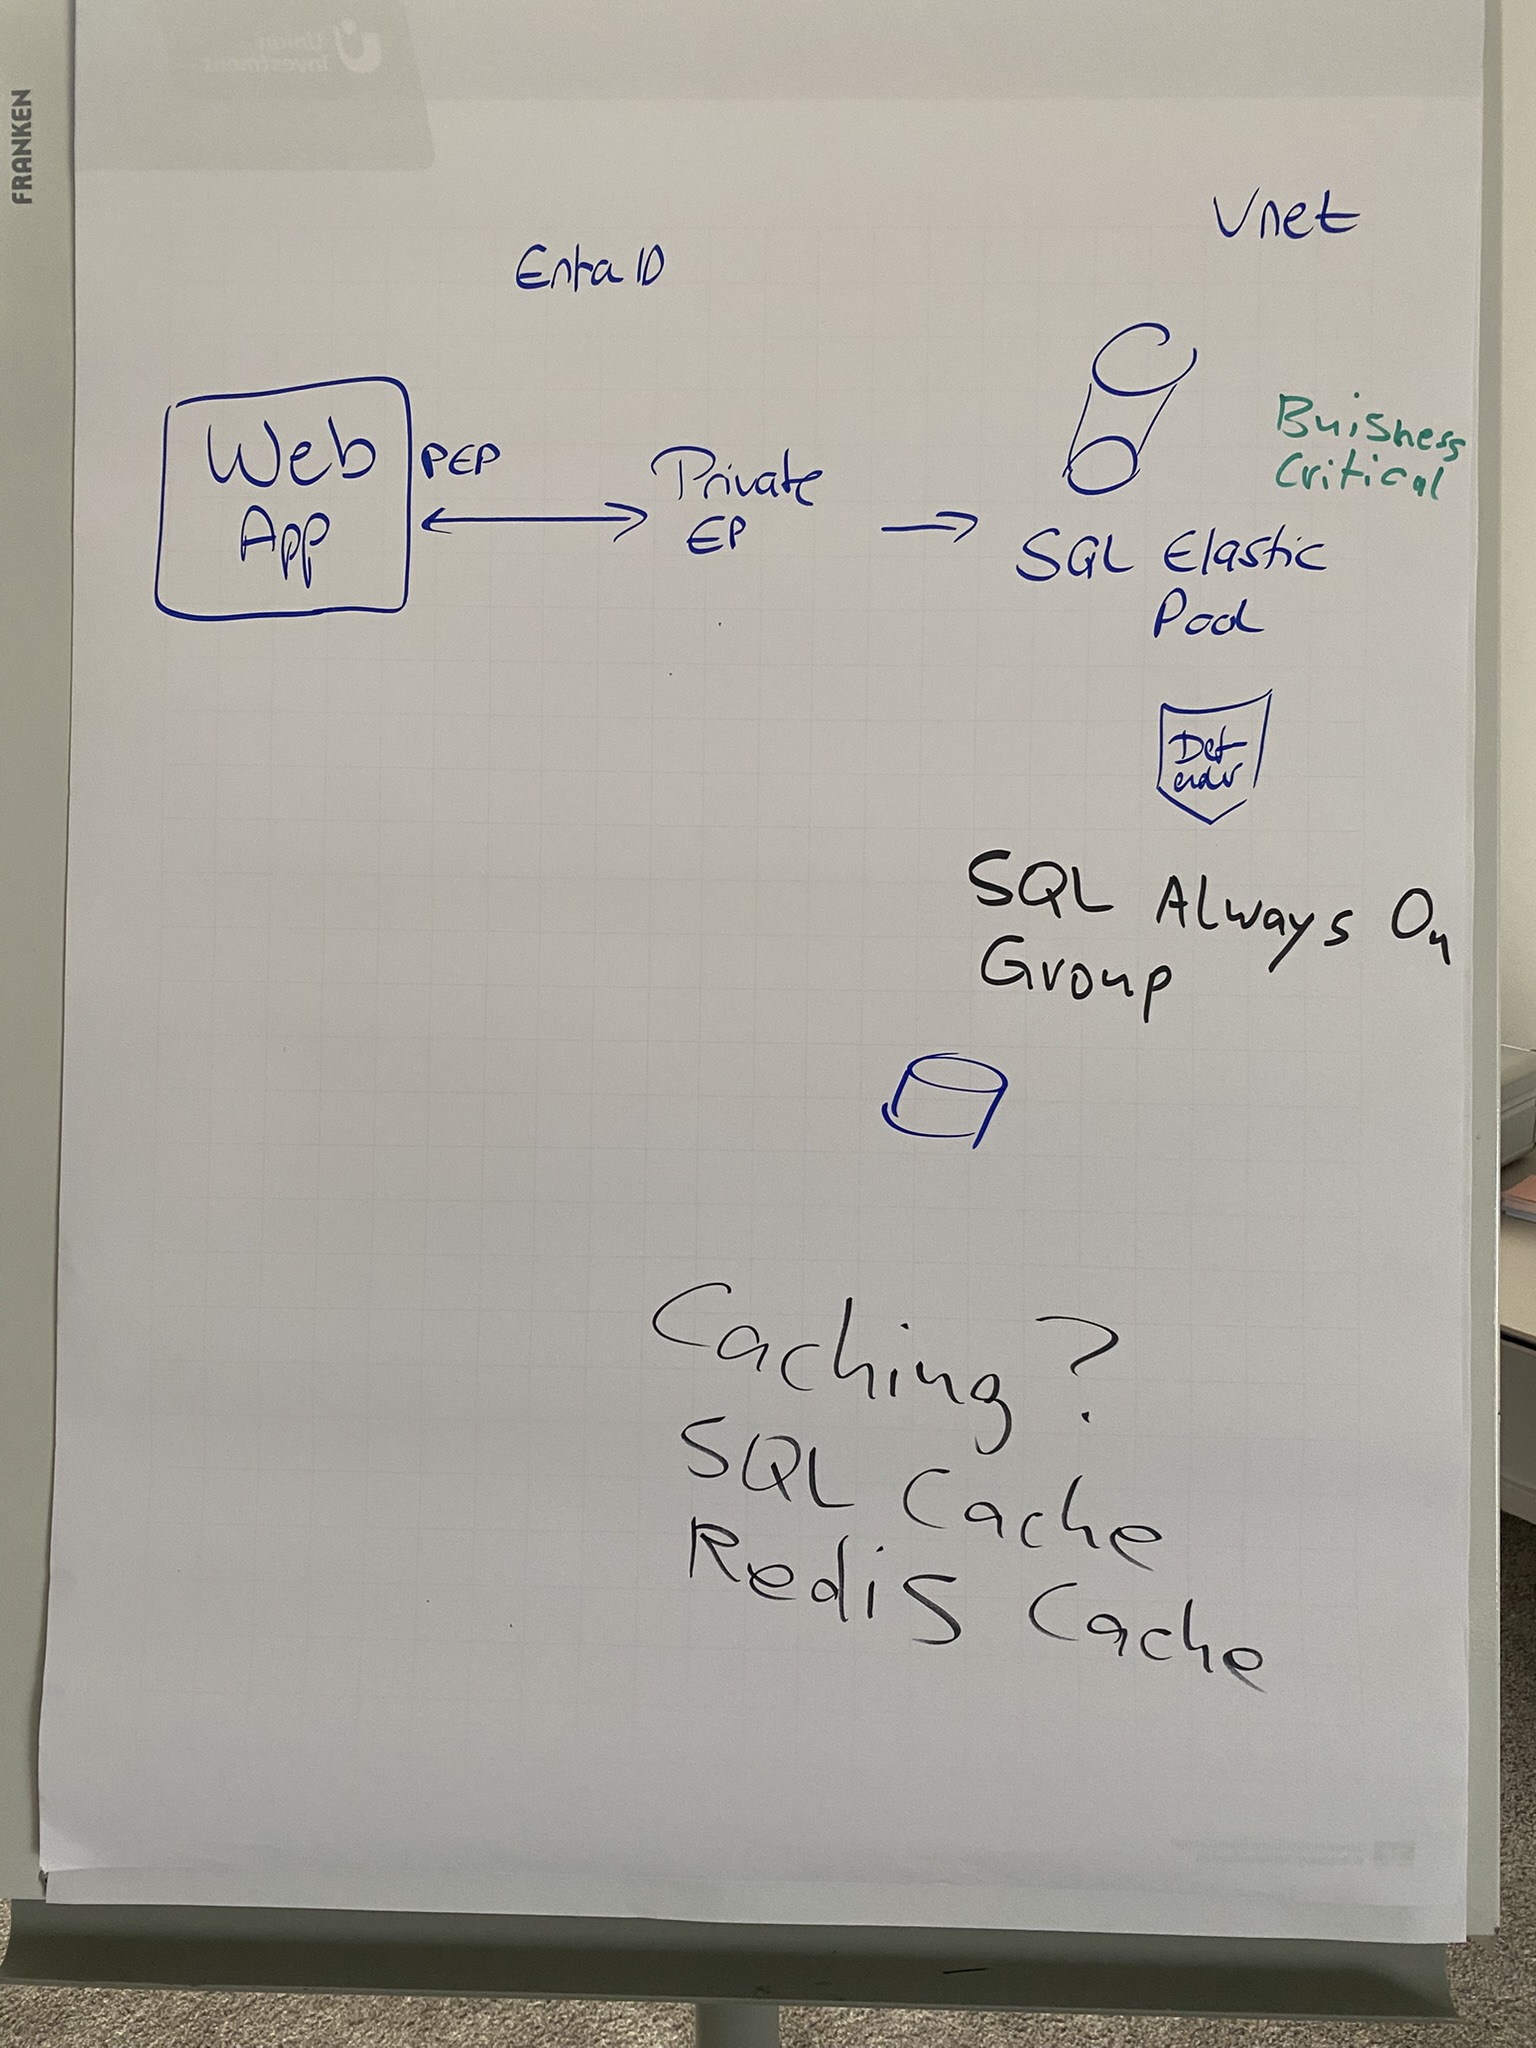 FRANKEN
Union
Investment
Vnet
Entra ID
Web
App
PEP
Private
EP
SQL Elastic
Pool
Buisness
Critical
Def
ender
SQL Always On
Group
Caching?
SQL Cache
Redis Cache